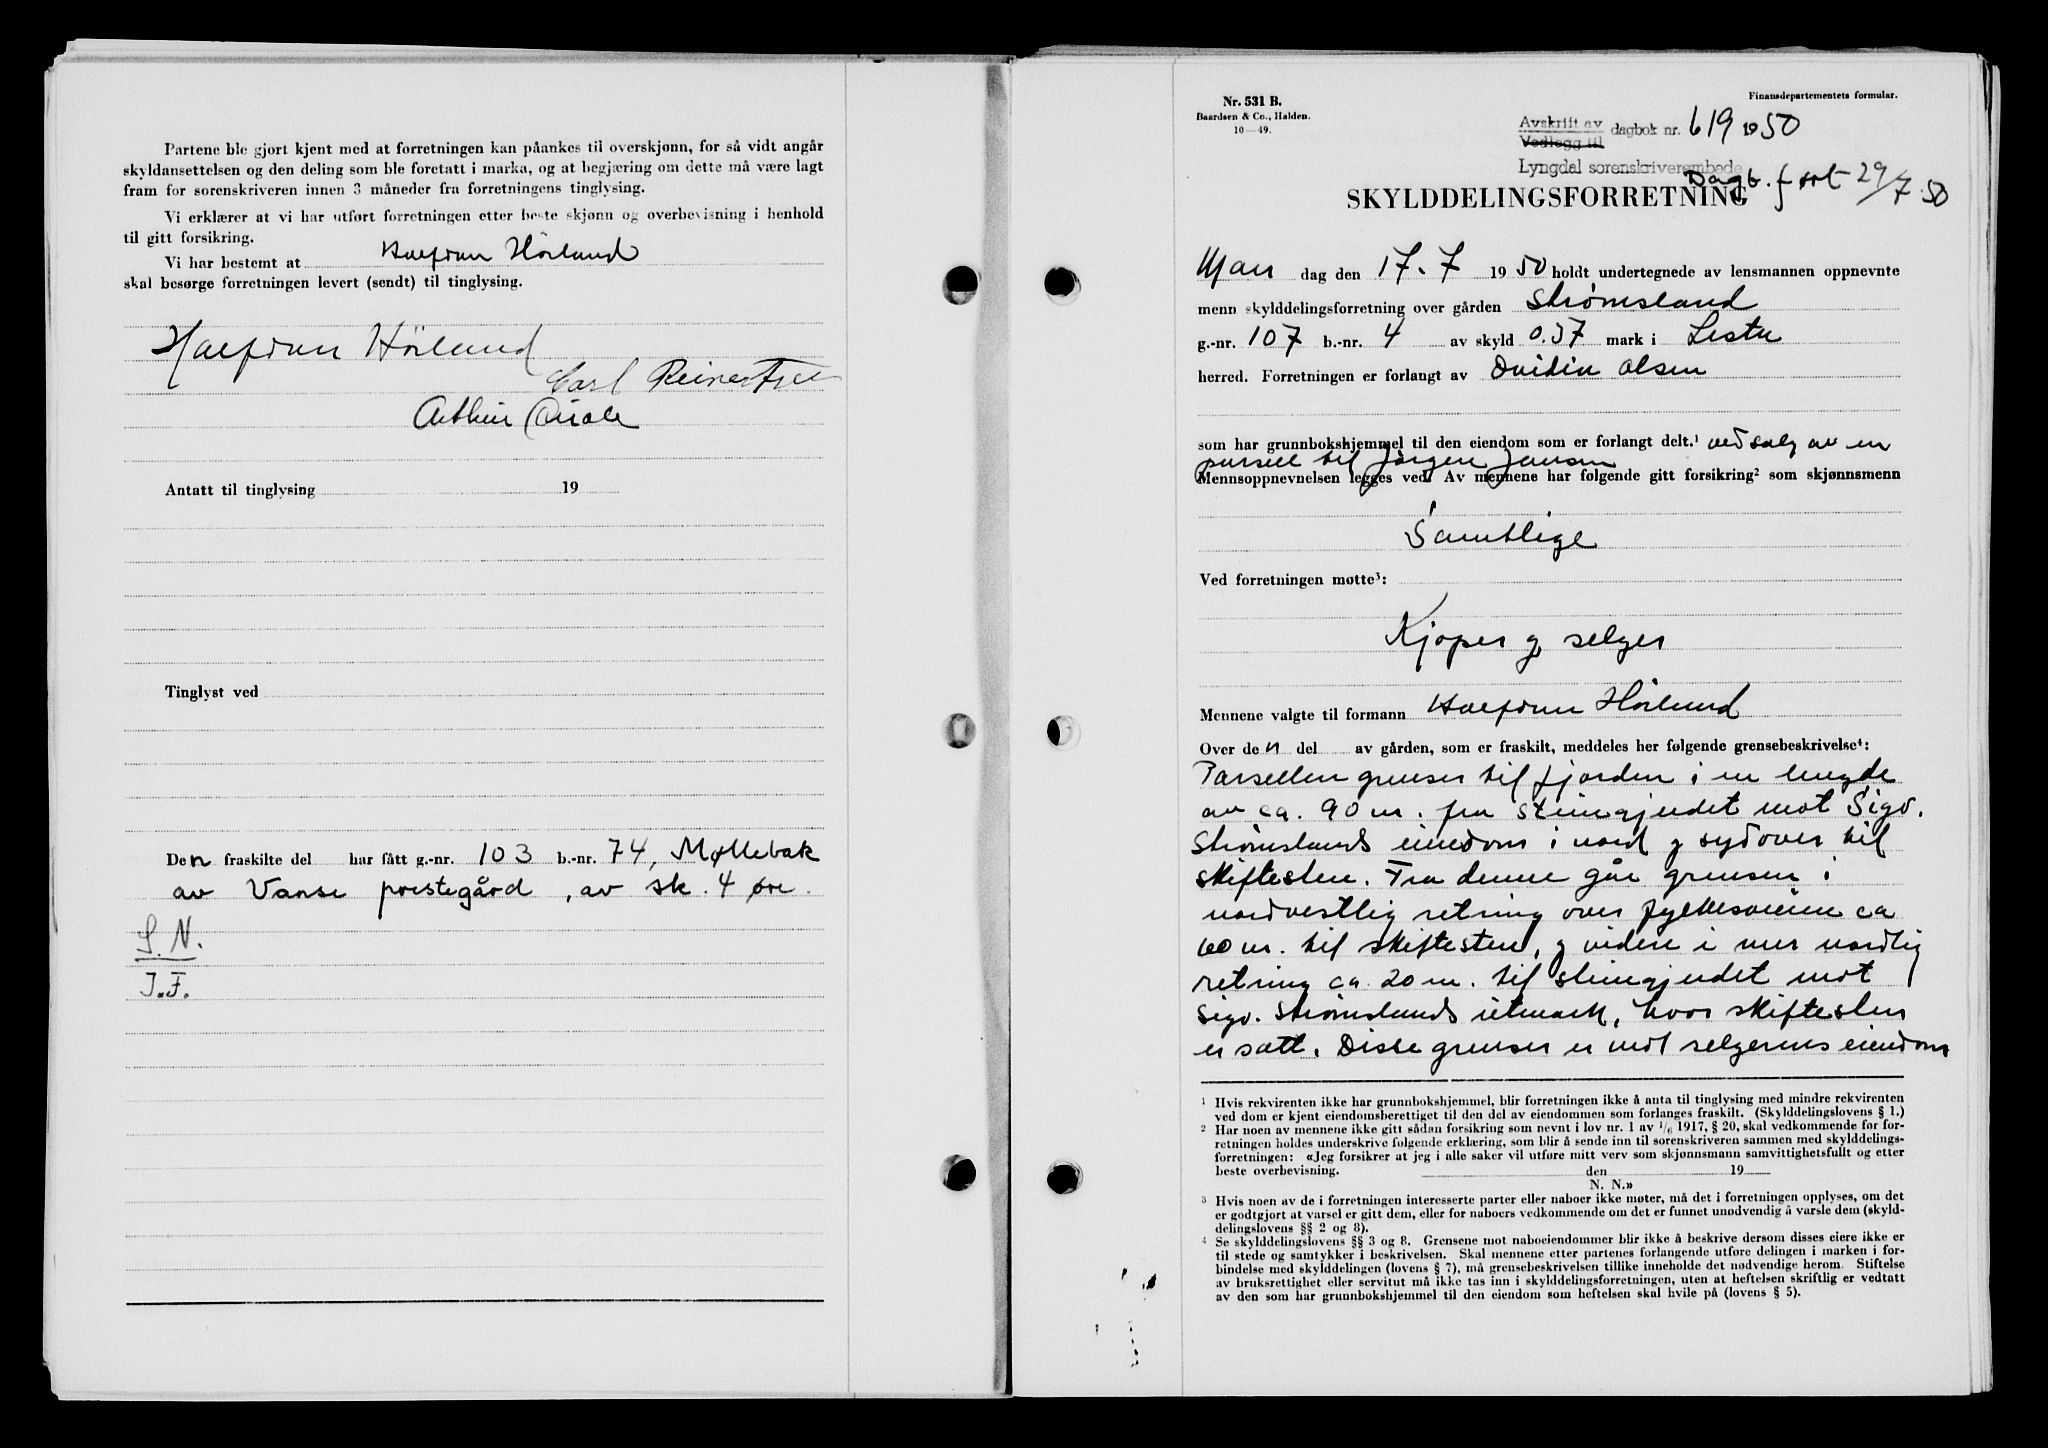 Partene ble gjort kjent med at forretningen kan påankes til overskjønn, for så vidt angår
skyldansettelsen og den deling som ble foretatt i marka, og at begjæring om dette må være lagt
fram for sorenskriveren innen 3 måneder fra forretningens tinglysing.
Vi erklærer at vi har utført forretningen etter beste skjønn og overbevisning i henhold
til gitt forsikring.
Vi har bestemt at Halfdan Hörlund
skal besørge forretningen levert (sendt) til tinglysing.
Halfdan Hörlund
Carl Reinertsen
Arthur
Antatt til tinglysing 19
Tinglyst ved
Den fraskilte del har fått g.-nr. 103 b.-nr. 74, Møllebak
av Vanse prestegård, av sk. 4 øre.
S.N.
J.F.
Nr. 531 B.
Baardsen & Co., Halden.
10—49.
Finansdepartementets formular.
Avskrift av
Vedlegg til
dagbok nr. 619 1950
Lyngdal sorenskriverembede
Dagb. ført 29/7.50
SKYLDDELINGSFORRETNING
Man dag den 17-7 1950 holdt undertegnede av lensmannen oppnevnte
menn skylddelingsforretning over gården Strømsland
g.-nr. 107 b.-nr. 4 av skyld 0.57 mark i Lista
herred. Forretningen er forlangt av Ovidia Olsen
som har grunnbokshjemmel til den eiendom som er forlangt delt.¹ ved salg av en
parsell til Jörgen Jansen
Mennsoppnevnelsen legges ved. Av mennene har følgende gitt forsikring² som skjønnsmenn
Samtlige
Ved forretningen møtte³:
Kjøper og selger
Mennene valgte til formann Halfdan Hörlund
Over den del av gården, som er fraskilt, meddeles her følgende grensebeskrivelse⁴:
Parsellen grenser til fjorden i en lengde
av ca. 90 m. fra steingjerdet mot Sigv.
Strømslands eiendom i nord og sydover til
skiftesten. Fra denne går grensen i
nordvestlig retning over fylkesveien ca
60 m. til skiftesten, og videre i mer nordlig
retning ca 20 m. til steingjerdet mot
Sigv. Strømslands utmark, hvor skiftesten
er satt. Disse grenser er mot selgerens eiendom
¹ Hvis rekvirenten ikke har grunnbokshjemmel, blir forretningen ikke å anta til tinglysing med mindre rekvirenten
ved dom er kjent eiendomsberettiget til den del av eiendommen som forlanges fraskilt. (Skylddelingslovens § 1.)
² Har noen av mennene ikke gitt sådan forsikring som nevnt i lov nr. 1 av 1/6 1917, § 20, skal vedkommende før for-
retningen holdes underskrive følgende erklæring, som blir å sende inn til sorenskriveren sammen med skylddelings-
forretningen: «Jeg forsikrer at jeg i alle saker vil utføre mitt verv som skjønnsmann samvittighetsfullt og etter
beste overbevisning. den 19
N. N.»
³ Hvis noen av de i forretningen interesserte parter eller naboer ikke møter, må det i forretningen opplyses, om det
er godtgjort at varsel er gitt dem, eller for naboers vedkommende om det er funnet unødvendig å varsle dem (skyld-
delingslovens §§ 2 og 8).
⁴ Se skylddelingslovens §§ 3 og 8. Grensene mot naboeiendommer blir ikke å beskrive dersom disses eiere ikke er
til stede og samtykker i beskrivelsen. Skal mennene etter partenes forlangende utføre delingen i marken i for-
bindelse med skylddelingen (lovens § 7), må grensebeskrivelsen tillike inneholde det nødvendige herom. Stiftelse
av bruksrettighet eller servitut må ikke tas inn i skylddelingsforretningen, uten at heftelsen skriftlig er vedtatt
av den som har grunnbokshjemmel til den eiendom som heftelsen skal hvile på (lovens § 5).